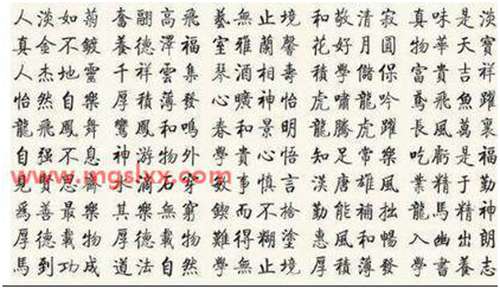 人淡如菊 奮翮高飛 藝無止境 和敬清寂 真味是淡
真金不鍍 養德澤福 室雅蘭馨 花好月圓 物華天寶
人杰地靈 千祥雲集 琴酒相壽 積學儲 富貴吉祥
怡然自樂 厚積薄發 心曠神怡 虎嘯龍吟 鳶飛魚躍
龍飛鳳舞 鸞鳳和鳴 春和景明 龍騰虎躍 長風萬里
自強不息 神游物外 學貴心悟 知足常樂 吃虧是福
見賢思齊 水滴石穿 敏事慎言 漢唐雄風 業精于勤
為善最樂 其樂無窮 鍥而不捨 勤能補拙 龍馬精神
厚德載物 厚德載物 難得糊塗 惠風和暢 入幽出朗
馬到功成 道法自然 學無止境 厚積薄發 學書養志
www.mgslxx.com